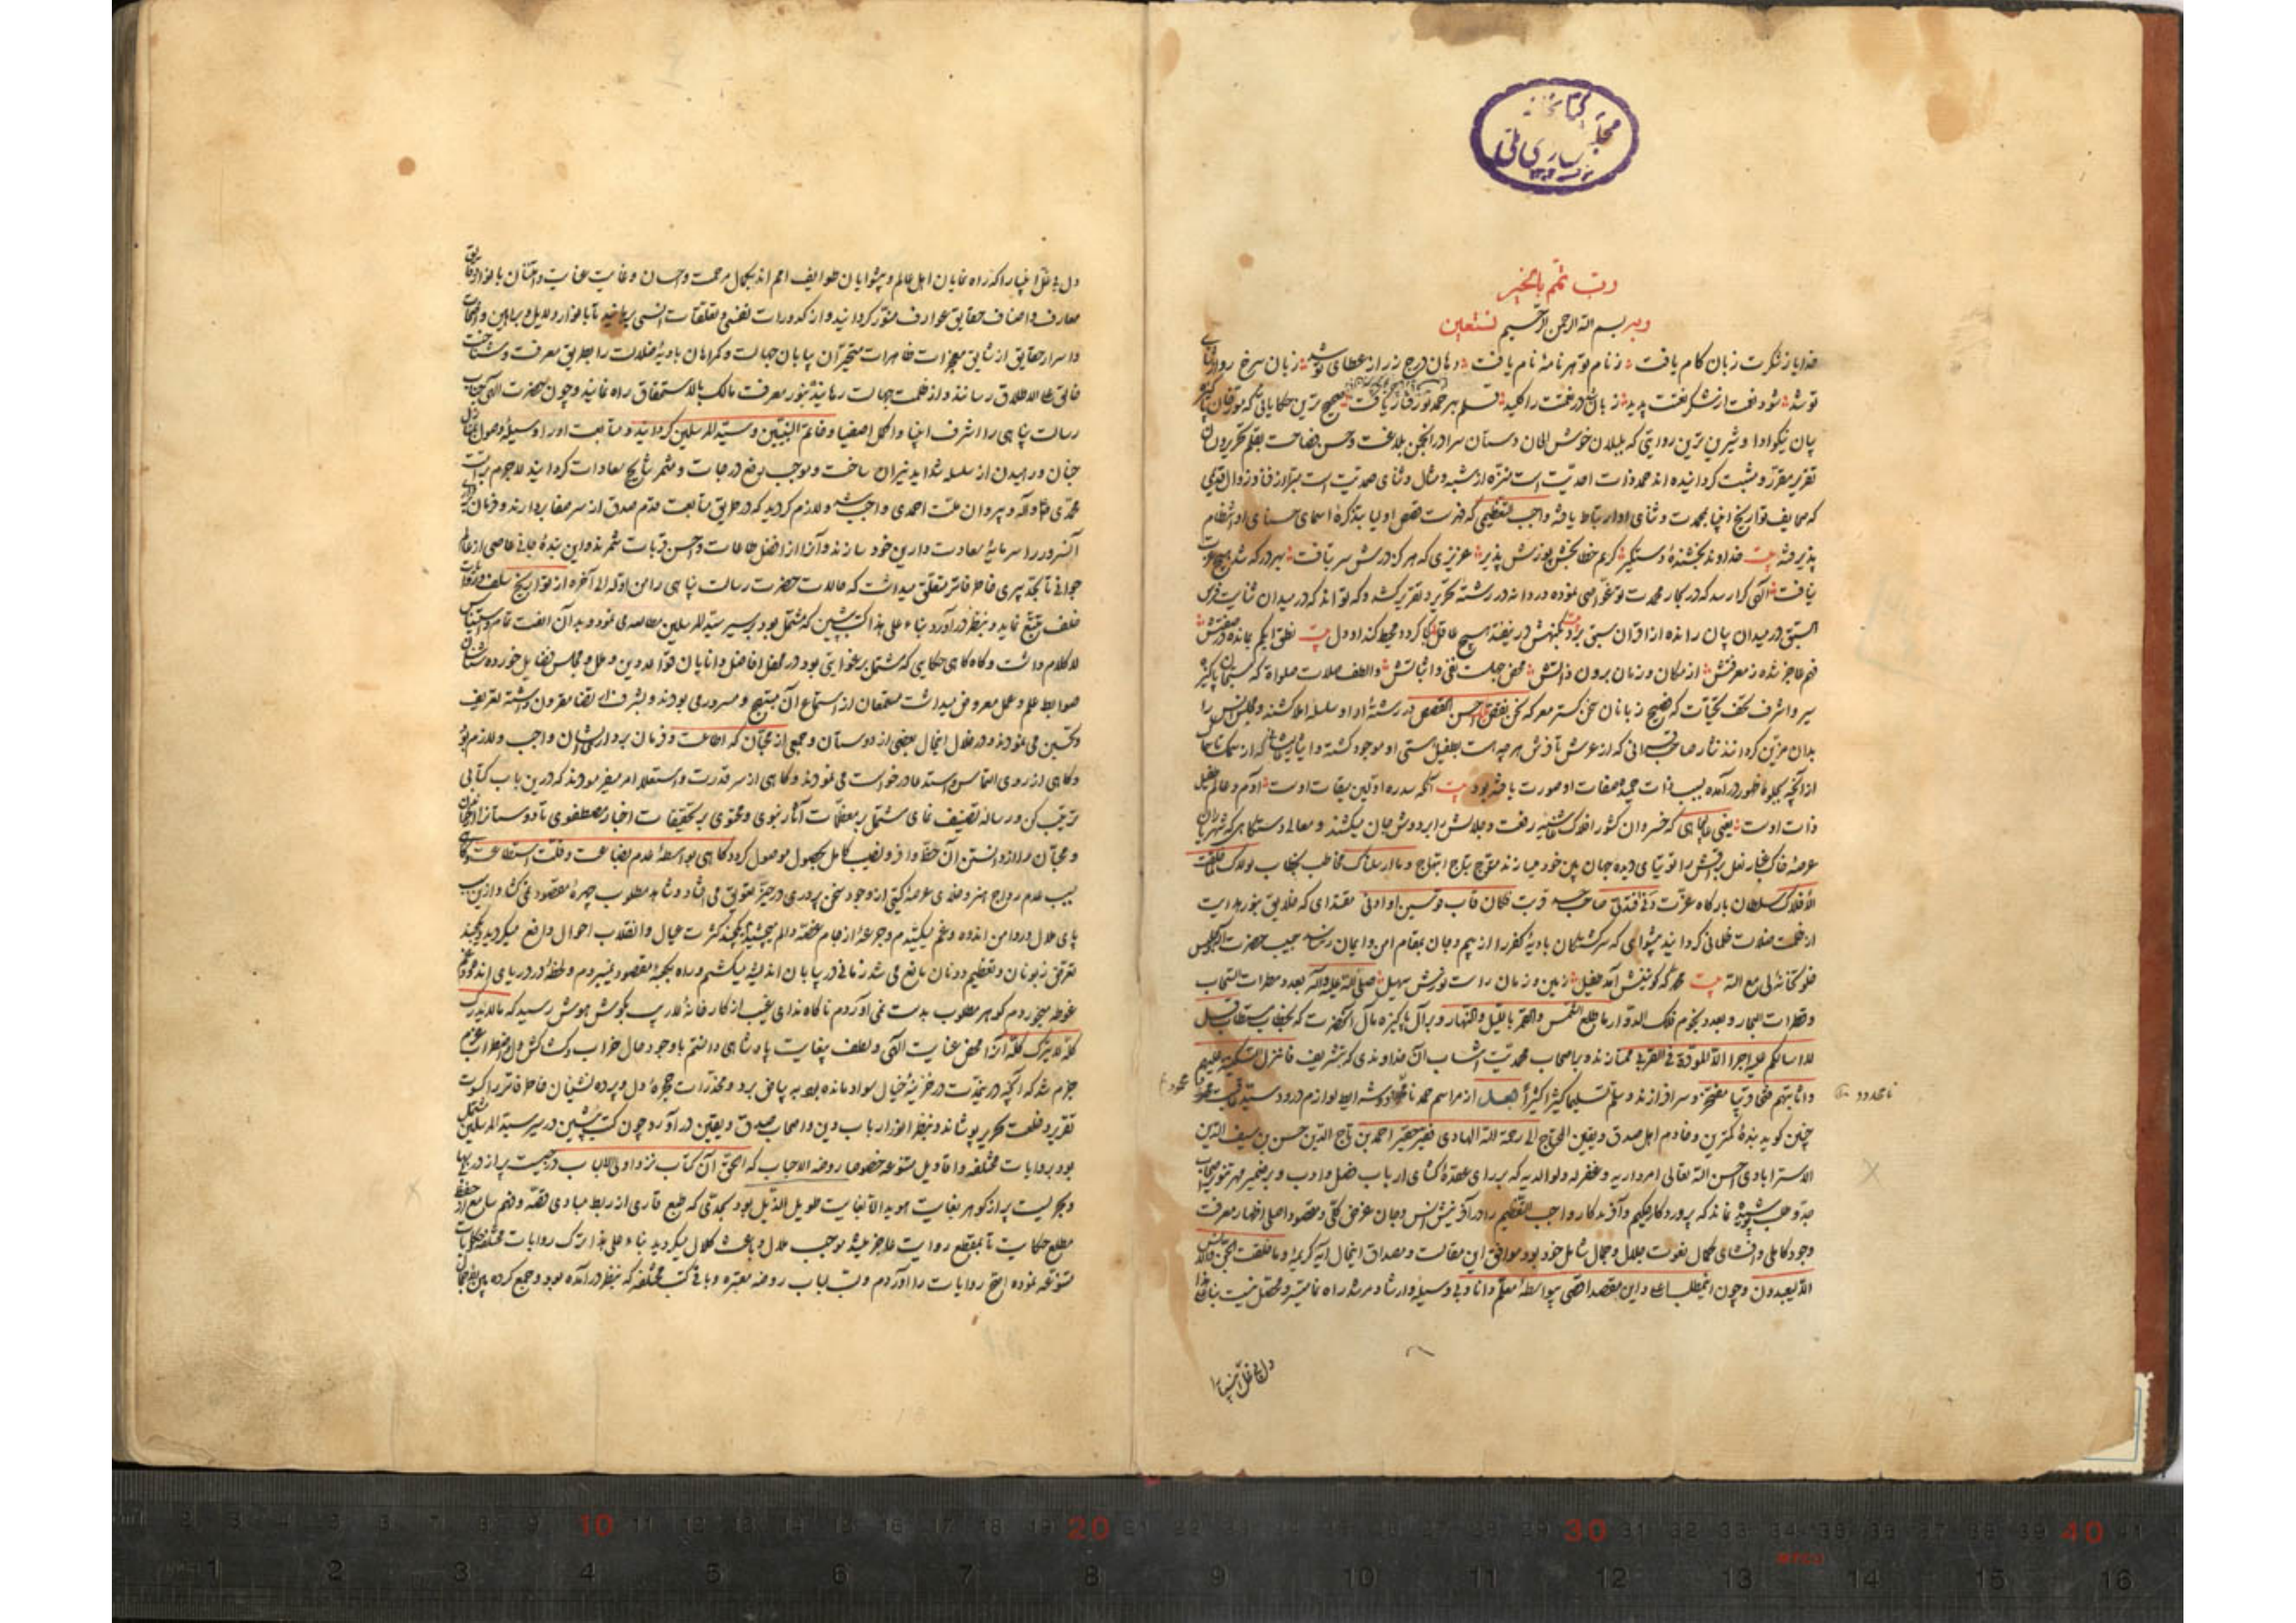 کتابخانه
مجلس شورای ملی
رب تمم بالخیر
وبه بسم الله الرحمن الرحیم نستعین
خدایا ز شکرت زبان کام یافت ز نام تو هر نامهٔ نام یافت دهان درج زر از عطای تو شد زبان سرخ رو از
تو شد شود نعمت از شکر نعمت پدید زبان در نعمت را کلید قلم بهر حمد تو رفتار یافت صحیح ترین حکایاتی که مورخان
بیان نیکو ادا و شیرین ترین روایتی که بلبلان خوش الحان دستان سرا در انجمن بلاغت و حسن فصاحت بقلم تحریر و
تقریر مقرر و مثبت گردانیده اند حمد ذات احدیت است منزه از شبه و مثال و ثنای صمدیت است مبرا از فنا و زوال قدیمی
که صحایف تواریخ انبیا بمحمدت و ثنای او ارتباط یافته واجب التعظیمی که فهرست قصص اولیا بتذکرهٔ اسمای حسنای او انتظام
پذیرفته بیت خداوند بخشندهٔ دستگیر کریم خطابخش پوزش پذیر عزیزی که هر کز درش سر بتافت بهر در که شد هیچ عزت
نیافت کرا رسد که در بحار محمدت تو غواصی نموده در دانه در رشته تحریر و تقریر کشد و که تواند که در میدان ثنایت فرس
در میدان بیان رانده از اقران سبق برد بیت نطق ابکم بمانده در صفتش
فهم عاجز شده ز معرفتش از مکان و زمان برون ذاتش محض جهلست نفی و اثباتش و الطف صلات صلواة که
سیر و اشرف تحف تحیات که فصیح زبانان سخن گستر معرکه نحن نقص علیک احسن القصص در رشتهٔ ادا و سلسله املا کشند و مجلس انس را
بدان مزین گردانند نثار صاحب قرانی که از عرش تا فرش هر چه هست بطفیل هستی او موجود گشته و
از آنچه بجلوهٔ ظهور در آمده بسبب ذات حمیده صفات او صورت یافته بود بیت آنکه سدره اولین میقات اوست آدم و عالم طفیل
ذات اوست یعنی که خسروان کشور افلاک غاشیه رفعت و جلالش را بر دوش جان میکشند و معالی دستگاهی که شهریاران
عرصهٔ خاک غبار نعل براقش را توتیای دیده جهان بین خود میسازند متوج بتاج ابتهاج و ما ارسلناک مخاطب بخطاب لولاک لما خلقت
الافلاک سلطان بارگاه عزت دنی فتدلی صاحب قربت فکان قاب قوسین او ادنی مقتدای که خلایق بنور هدایت
از ظلمت ضلالت ظلمانی گردانید پیشوای که سرگشتگان بادیهٔ کفر را از بیم و جان بمقام امن و ایمان رسانید حبیب حضرت
خلوتخانه لی مع الله بیت محمد که کونینش آمد طفیل زمین و زمان راست نورش سهیل صلی الله علیه و آله بعدد مطرات السحاب
و قطرات البحار و بعدد نجوم فلک الدوار ما طلع الشمس و القمر باللیل و النهار و بر آل پاکیزه مآل آنحضرت که بخطاب مستطاب قل
لا اسالکم علیه اجرا الا المودة فی القربی ممتازند و باصحاب محمدیت انتساب آن خداوندی که بتشریف فانزل السکینة علیهم
واثابهم فتحا قریبا مفتخر و سرافرازند و سلم تسلیما کثیرا کثیرا بعد از مراسم حمد و شرایط لوازم درود سید
نامحدود
چنین گوید بندهٔ کمترین و خادم اهل صدق و یقین المحتاج الی رحمة الله الهادی فقیر حقیر احمد بن تاج الدین حسن بن سیف الدین
الاسترابادی احسن الله تعالی امور داریه و غفر له و لوالدیه که بر رای عقده گشای ارباب فضل و ادب و بر ضمیر مهر تنویر
نماند که پروردگار حکیم و آفریدگار واجب التعظیم را در آفرینش انس و جان غرض کلی و مقصود اصلی اظهار معرفت
وجود کامل و افشای کمال نعوت جلال و جمال شامل خود بود موافق این مقالت و مصداق اینحال آیه کریمهٔ و ما خلقت الجن و الانس
الا لیعبدون و چون این مطلب اعلی و این مقصد اقصی بیواسطهٔ معلم دانا و بی وسیلهٔ ارشاد مرشد راه نما میسر و محصل نیست بنا
معارف و اصناف حقایق عوارف منور گردانید و از کدورات نفسی و تعلقات انسی برهانید تا بانوار دلایل و براهین و
و اسرار حقایق از شایق معجزات ظاهرات متحیران بیابان جهالت و گمراهان بادیهٔ ضلالت را بطریق معرفت و شناخت
خالق علی الاطلاق رسانند و از ظلمت جهالت رهانیده بنور معرفت مالک بالاستحقاق راه نمایند و چون حضرت الهی
رسالت پناهی را اشرف انبیا و اکمل اصفیا و خاتم النبیین و سید المرسلین گردانید و متابعت او را وسیله وصول
جنان و رهیدن از سلسله شداید نیران ساخت و موجب رفع درجات و مثمر نتایج سعادات گردانید لاجرم بر امت
محمدی و پیروان ملت احمدی واجب و لازم گردید که در طریق متابعت قدم صدق از سر صفا بردارند و فرمان
آنسرور را سرمایهٔ سعادت دارین خود سازند و آنرا از افضل طاعات و احسن قربات شمرند و این بندهٔ جانی عاصی از عالم
جوانی تا بحد پیری خاطر فاتر متعلق میداشت که حالات حضرت رسالت پناهی را من اوله الی آخره از تواریخ سلف
خلف تتبع نماید و بنظر در آورد بناء علی هذا کتب پیشین که مشتمل بود بر سیر سید المرسلین مطالعه می نمود و بدان الفت تمام و
لا کلام داشت و گاه گاهی حکایتی که مشتمل بر غزایتی بود در محفل افاضل و دانایان قواعد دین و ملل و مجالس
ضوابط علم و عمل معروض میداشت مستمعان از استماع آن مبتهج و مسرور می بودند
و تحسین می نمودند و در خلال اینحال بعضی از دوستان و جمعی از محبان که اطاعت و فرمان برداری ایشان واجب و لازم بود
و گاهی از روی التماس و استدعا درخواست می نمودند و گاهی از سر قدرت و استعلا امر میفرمودند که درین باب کتابی
ترتیب کن و رساله تصنیف نمای مشتمل بر معظمات آثار نبوی و محتوی بر تحقیقات اخبار مصطفوی تا دوستانرا
و محبان را از دانستن آن حظ وافر و نصیب کامل بحصول موصول گردد گاهی بواسطهٔ عدم بضاعت و قلت استطاعت و گاهی
بسبب عدم رواج هنر و خلای عرصهٔ گیتی از وجود سخن پروری در حیز تعویق می افتاد و شاهد مطلوب چهرهٔ مقصود نمی گشاد و از این سبب
پای ملال در دامن اندوه و غم میکشیدم و جرعهٔ از جام غصه و الم میچشیدم کثرت عیال و انقلاب احوال واقع میگردید
زبونان و تعظیم دونان مانع می شد زمانی در بیابان اندیشه میگشتم و راه بکعبهٔ مقصود نمیبردم و لحظهٔ در دریای اندوه و غم
غوطه میخوردم گوهر مطلوب بدست نمی آوردم ناگاه ندای غیب از کارخانهٔ لاریب بگوش هوش رسید که ما لا یدرک
کله لا یترک کله آنرا محض عنایت الهی و لطف بیغایت پادشاهی دانستم با وجود حال خراب
جزم شد که آنچه در خزینهٔ خیال سواد مانده بود به بیاض برد و مخدرات حجرهٔ دل و پرده نشینان خاطر فاتر را کسوت
تقریر و خلعت تحریر پوشانده بنظر انور ارباب دین و اصحاب صدق و یقین در آورد و چون کتب پیشین در سیر سید المرسلین مشتمل
بود بروایات مختلفه و اقاویل متنوعه خصوصا روضة الاحباب که الحق آن کتاب نزد اولی الالباب درجیست پر از در بی بها
و بحریست پر از گوهر بغایت هویدا الا بغایت طویل الذیل بود بحدی که طبع قاری از ربط مبادی قصه و فهم سامع از حفظ
مطلع حکایت تا بمقطع روایت عاجز میشد موجب ملال و باعث کلال میگردید بناء علی هذا ترک روایات مختلفه و حکایات
متنوعه نموده اصح روایات را آوردم و لب لباب روضه معتبره و باقی کتب مختلفه که بنظر در آمده بود جمع کرده